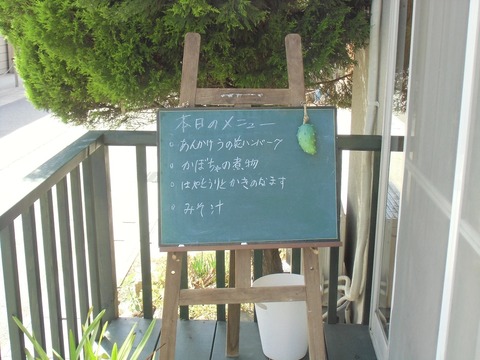 本日のメニュー
○ あんかけうの花ハンバーグ
○ かぼちゃの煮物
○ はやとうりとかきのなます
○ みそ汁